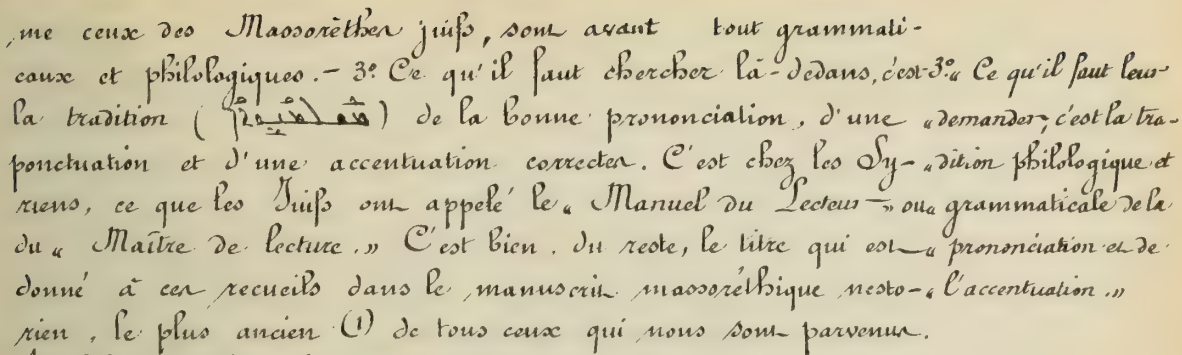 me ceux des Massorèthes juifs, sont avant tout grammati-
caux et philologiques. - 3º Ce qu'il faut chercher là-dedans, c'est
la tradition ( ) de la bonne prononciation, d'une
ponctuation et d'une accentuation correctes. C'est chez les Sy-
riens, ce que les Juifs ont appelé le « Manuel du Lecteur » ou
du « Maître de lecture. » C'est bien, du reste, le titre qui est
donné à ces recueils dans le manuscrit massoréthique nesto-
rien, le plus ancien (1) de tous ceux qui nous sont parvenus.
3º « Ce qu'il faut leur
« demander, c'est la tra-
« dition philologique et
« grammaticale de la
« prononciation et de
« l'accentuation. »